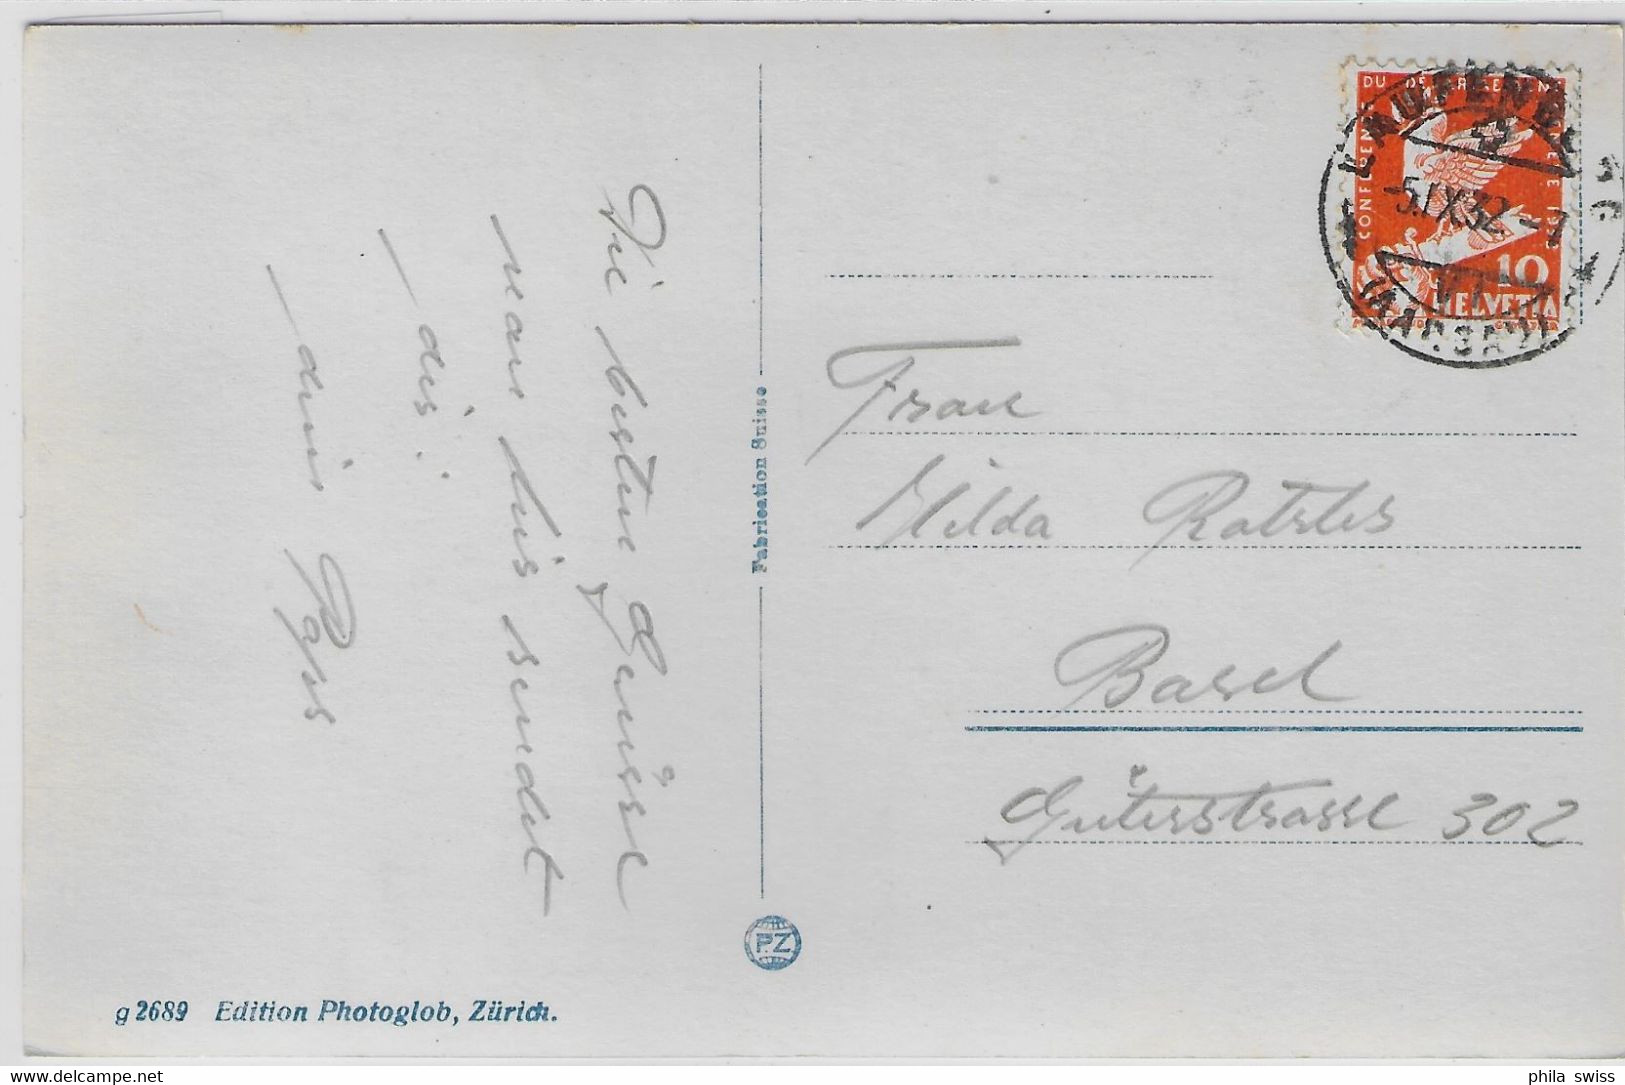 Die besten Grüsse
von hie sendet
dir
dein
g 2689 Edition Photoglob, Zürich.
Fabrication Suisse
P.Z
CONFERENCE DU DESARMEMENT GENEVE 1932
10
HELVETIA
LAUFENBURG
-5.IX.32.-7
VI
(AARGAU)
Frau
Hilda
Basel
Güterstrasse 302
phila swiss